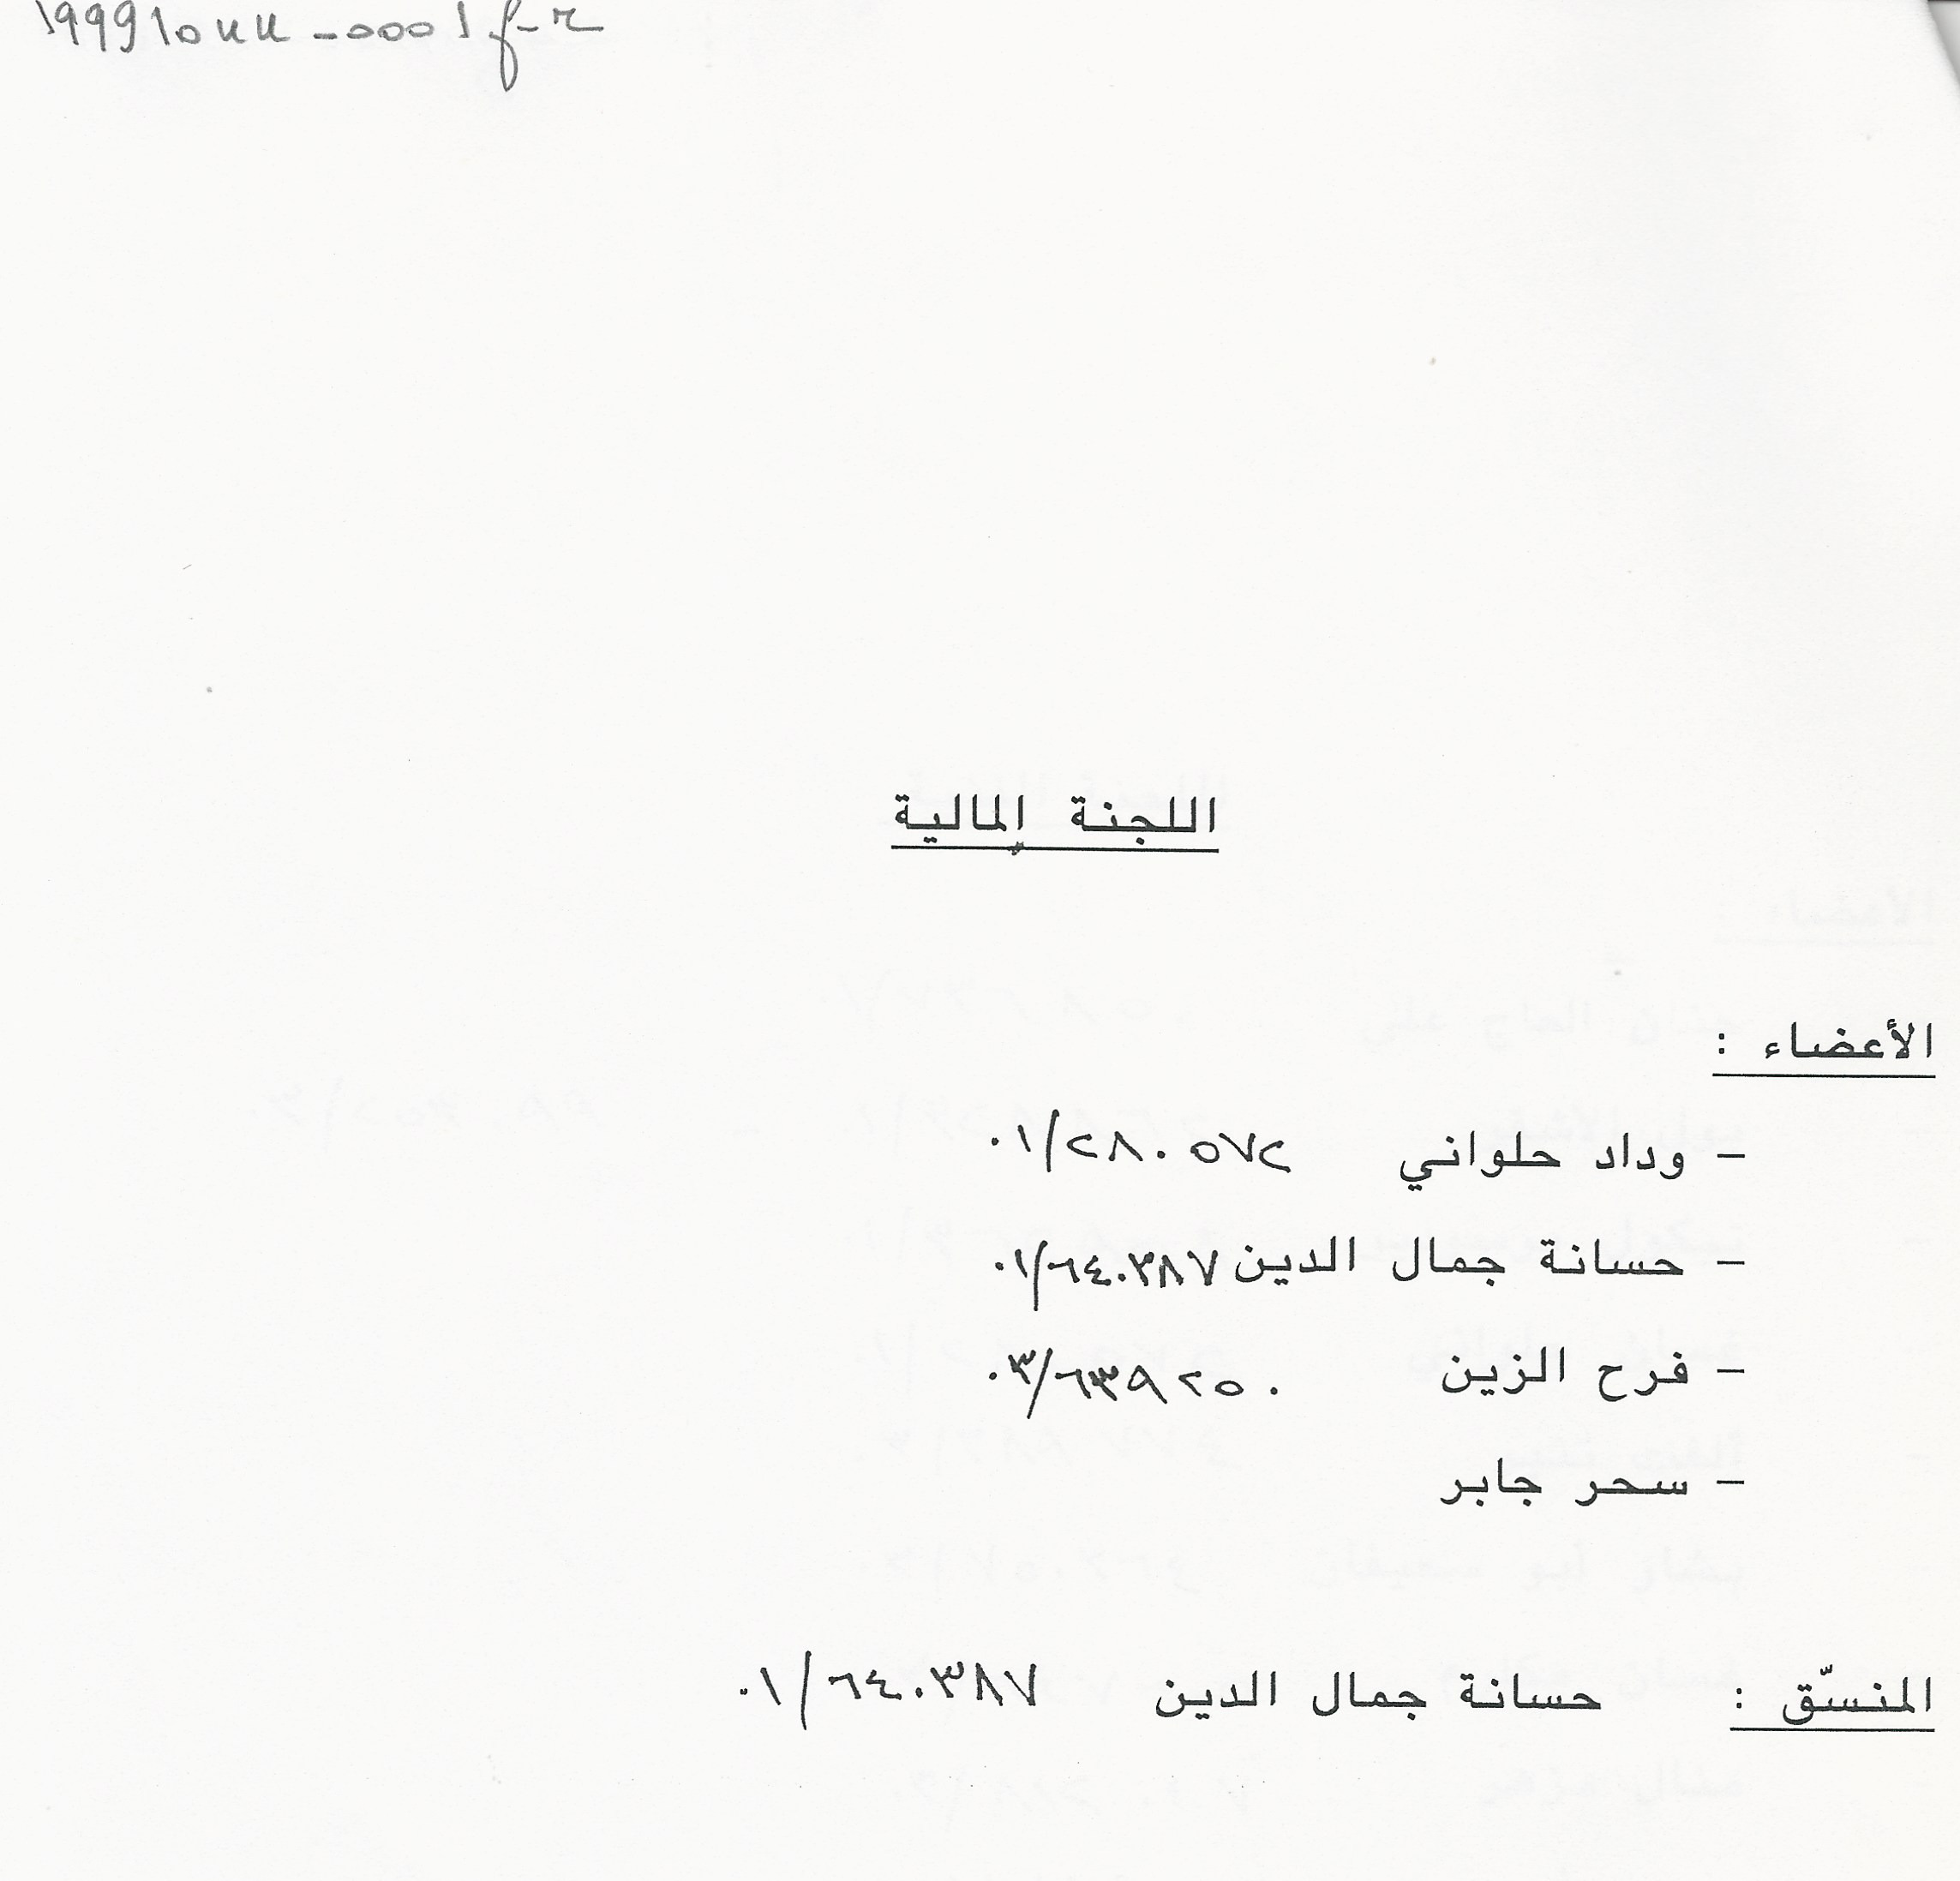 199910uu-0001f-r
اللجنة المالية
الأعضاء :
– وداد حلواني ٠١/٢٨٠٥٧٢
– حسانة جمال الدين ٠١/٦٤٠٣٨٧
– فرح الزين ٠٣/٦٣٩٢٥٠
– سحر جابر
المنسّق : حسانة جمال الدين ٠١/٦٤٠٣٨٧